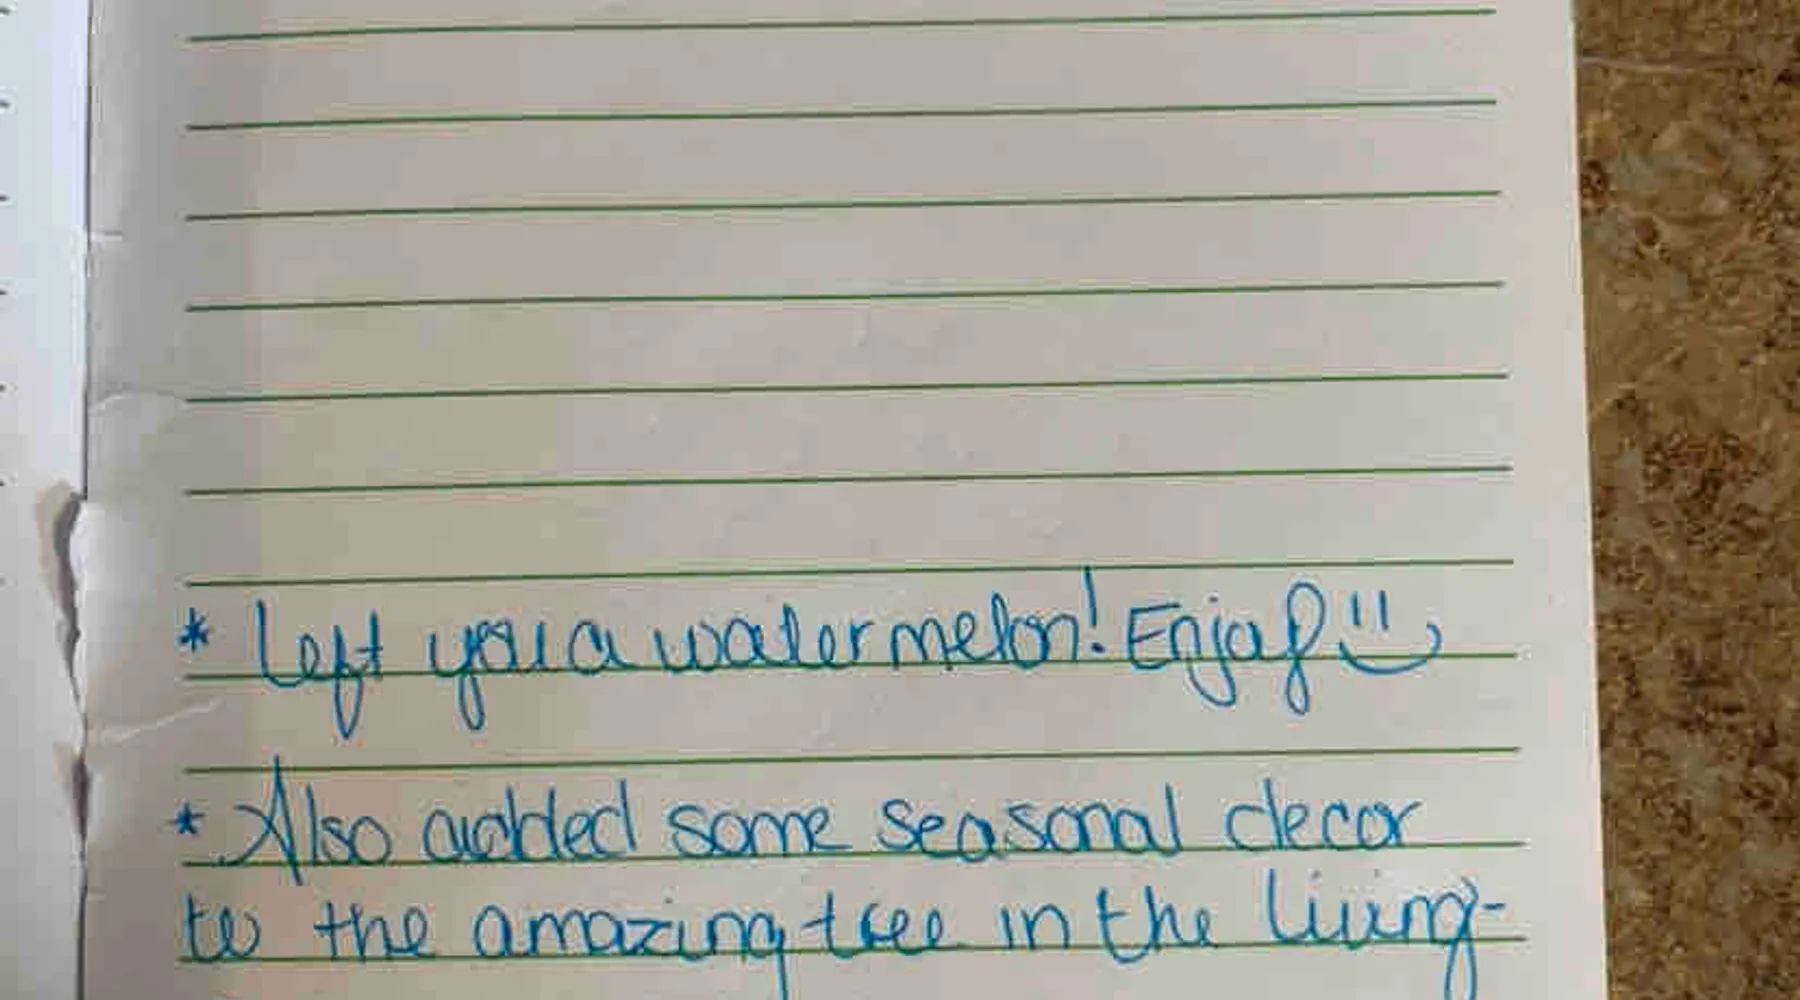 * Left you a watermelon! Enjoy
* Also added some seasonal decor
to the amazing tree in the living-